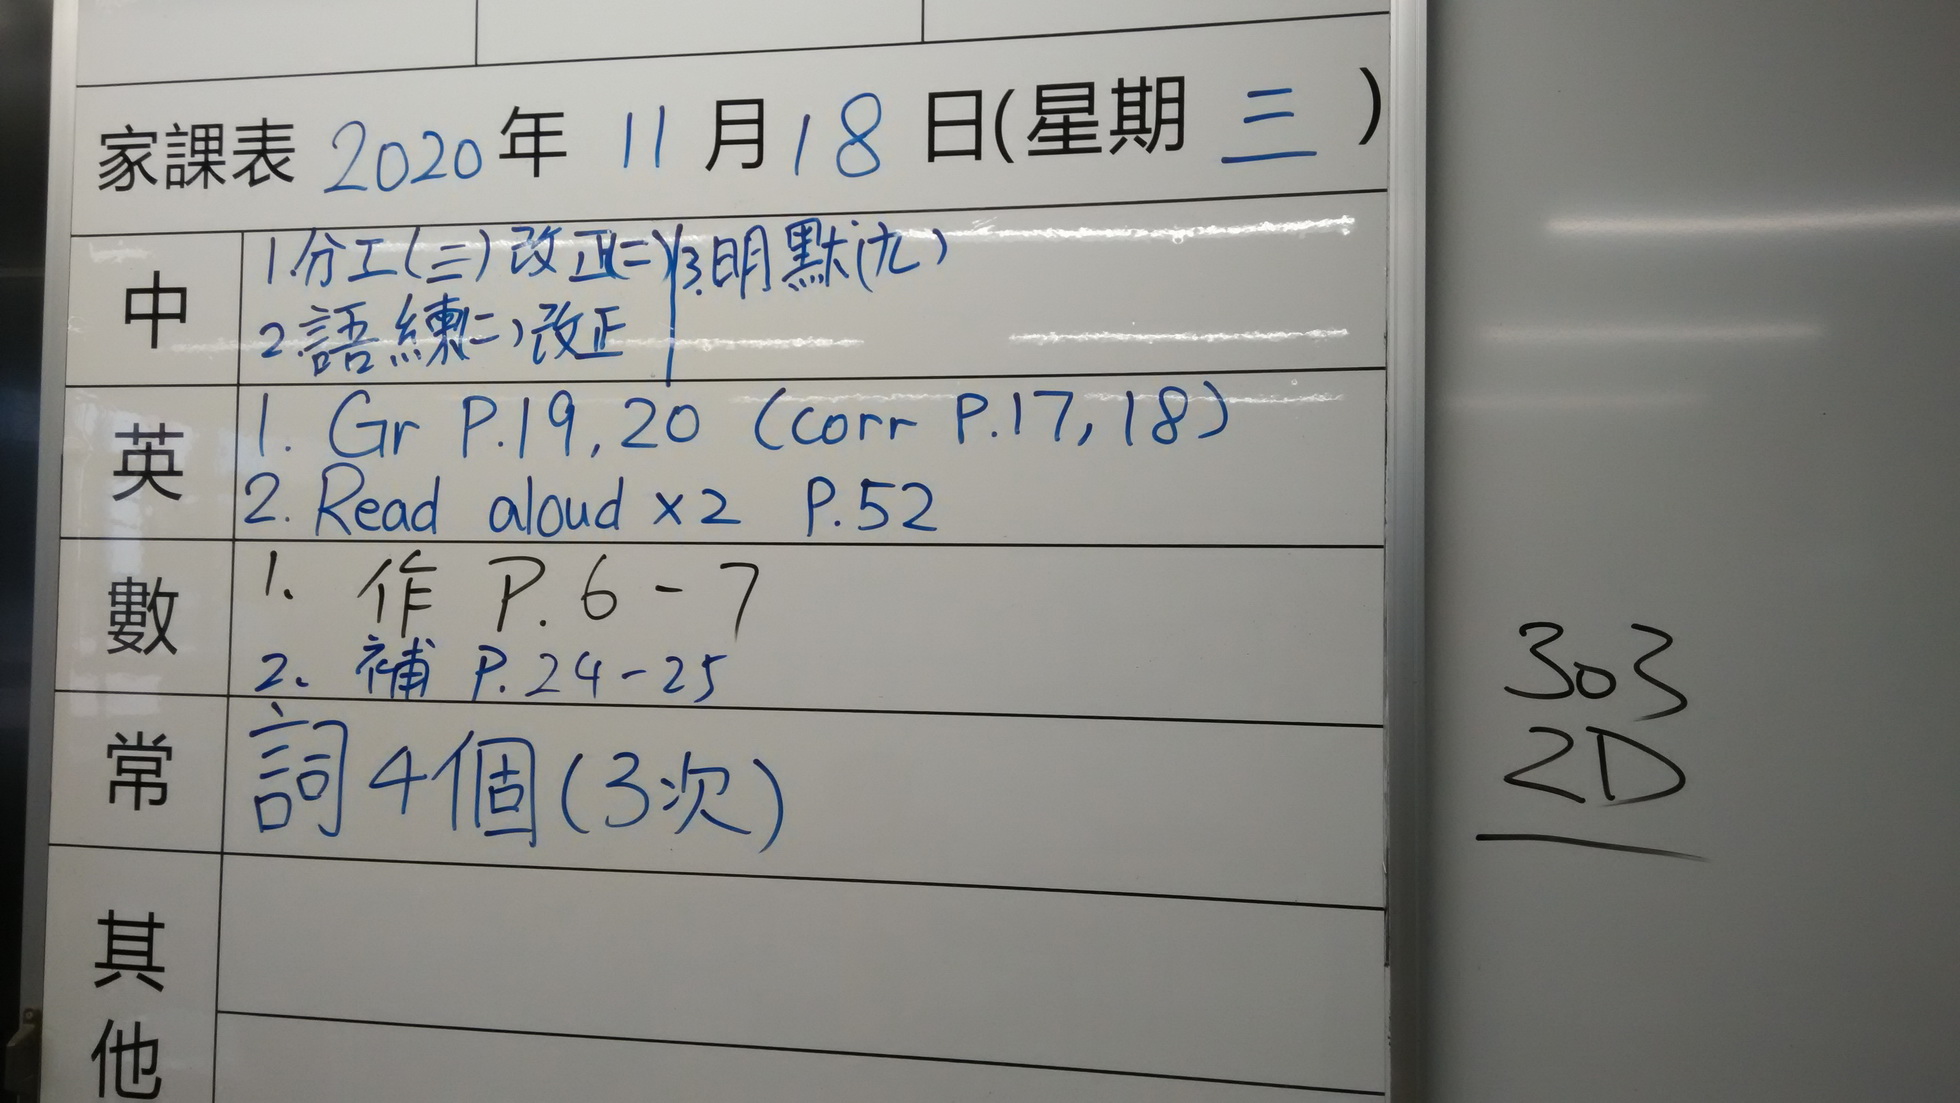 家課表 2020年 11月18日(星期三)
中
1.分工(三)改正(二) 3.明默(九)
2.語練(二)改正
英
1. Gr P.19,20 (corr P.17,18)
2. Read aloud x2 P.52
數
1. 作 P.6-7
2. 補 P.24-25
常
詞4個(3次)
其
他
303
2D